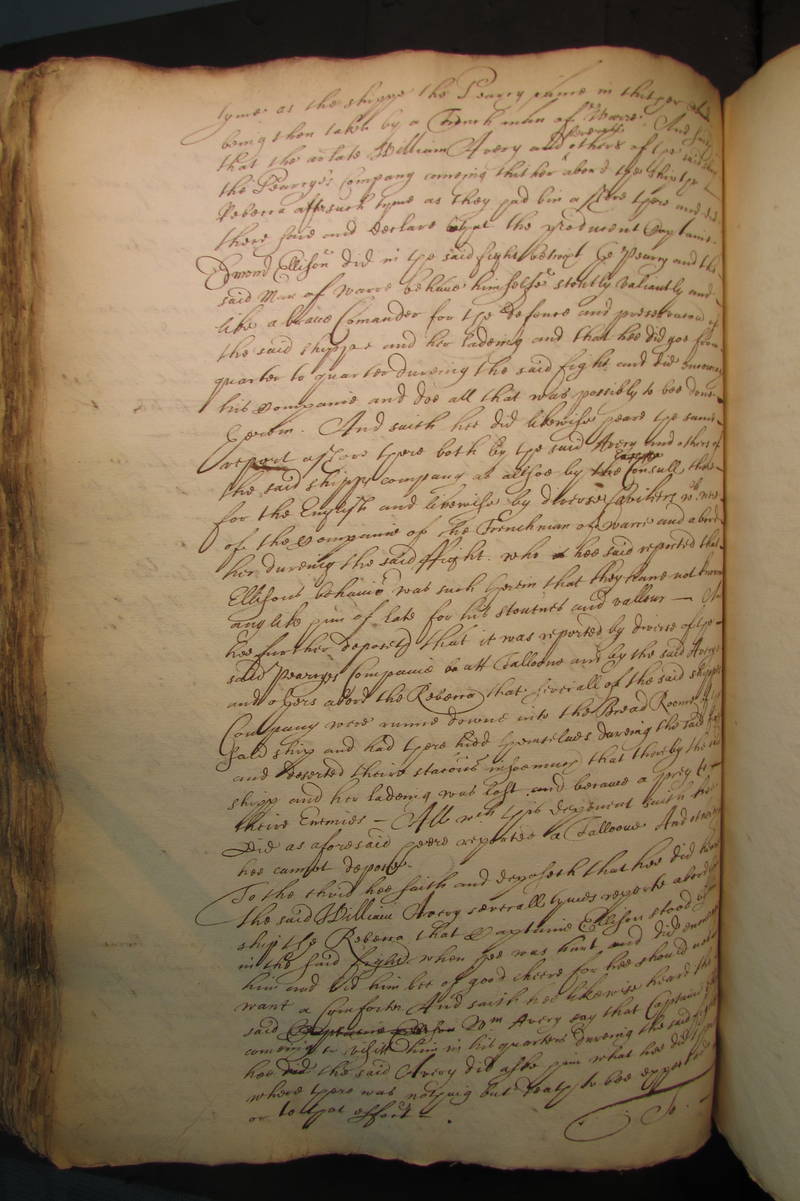 tyme as the shippe the Pearry came in thither
being then taken by a French man of Warre. And saith
that the arlate William Avery and severall others of the said shipp
the Pearryes Company comeing thither aboord the shippe
Rebecca after such tyme as they had bin a shore there and did
there saie and declare that the producent Captaine
Edmond Ellison did in the said fight betwixt the Pearry and the
said Man of Warre behave himselfe stoutly valiantly and
like a brave Comander for the defence and preservacon of
the said shippe and her ladeing and that hee did goe from
quarter to quarter dureing the said fight and did encourage
his companie and doe all that was possibly to bee done
therein. And saith hee did likewise heare the same
report a shore there both by the said Avery and others of
the said shipps company as allsoe by the Consull there
for the English and likewise by diverse which were
of the companie of the Frenchman of warre and aboord
her dureing the said ffight. who hee said reported that
Ellisons behavior was such therein that they have not knowne
any like him of late for his stoutnes and vallour
hee further deposeth that it was reported by diverse of the
said Pearryes Companie att Talloone and by the said Avery
and others abord the Rebecca that severall of the said shipps
Company were runne downe into the Bread Roome of the
said shipp and had there hidd themselves dureing the said fight
and deserted theire stacons insoemuch that thereby the said
shipp and her ladeing was lost and became a prey to
theire Enemies - All wch this deponent saith hee
did as aforesaid heare reported at Talloone And otherwise
hee cannot depose.
To the third hee saith and deposeth that hee did heare
the said William Avery severall tymes reporte abord the
ship the Rebecca that Captaine Ellison stood by
in the said fight when hee was hurt and did encourage
him and bid him bee of good cheere for hee should not
want a Comforter. And saith hee likewise heard the
said Wm Avery say that Captain
comeing to visitt him in his quarters dureing the said fight
hee the said Avery did aske him what hee did there
where there was nothing but death to bee expected
or to that effect.
To